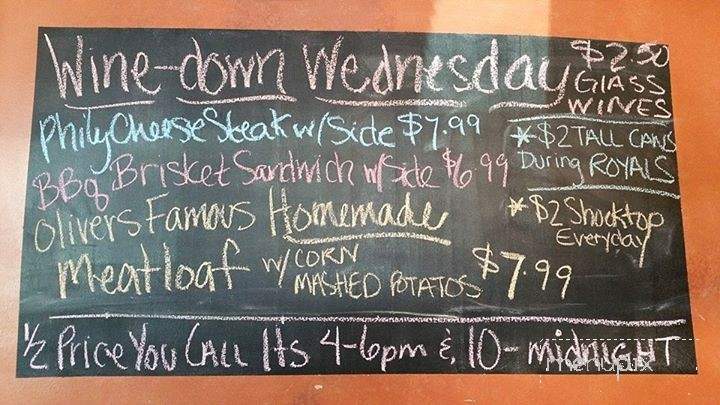 Wine-down Wednesday
$2.50
GLASS
WINES
Philly Cheese Steak w/Side $7.99
BBQ Brisket Sandwich w/side $6.99
Olivers Famous Homemade
Meatloaf w/ CORN
MASHED POTATOS $7.99
*$2 TALL CANS
During ROYALS
*$2 Shocktop
Everyday
1/2 Price You CAll Its 4-6pm & 10-MidNIGHT
menupix